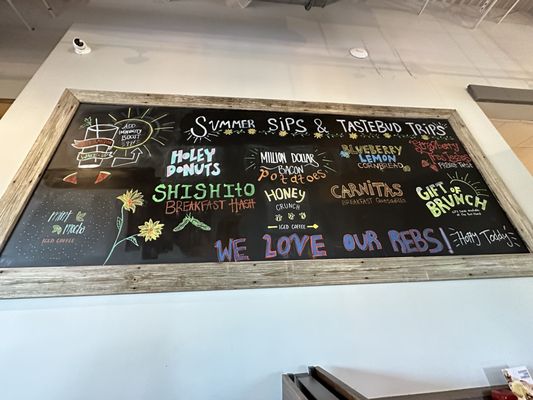 SUMMER SIPS & TASTEBUD TRIPS
ADD
IMMUNITY
BOOST
HOLEY
DONUTS
MILLION DOLLAR
BACON
POTATOES
BLUEBERRY
LEMON
CORNBREAD
Strawberry
SHISHITO
BREAKFAST HASH
HONEY
CRUNCH
ICED COFFEE
CARNITAS
BREAKFAST
GIFT OF
BRUNCH
MINT
MOCHA
ICED COFFEE
WE LOVE OUR REBS!